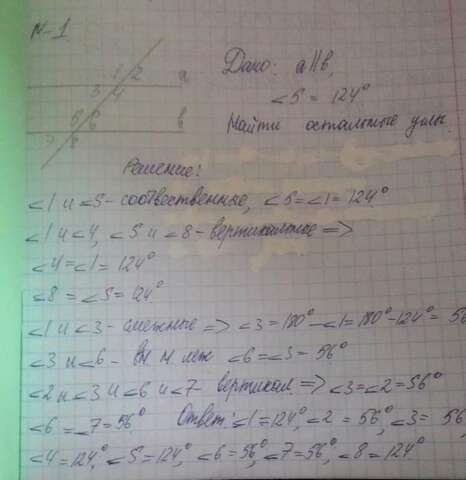 N-1
Дано: a||в,
∠5 = 124°
Найти остальные углы.
1 2 а
3 4
5 6 в
7 8
Решение:
∠1 и ∠5 - соотвественные, ∠5=∠1=124°
∠1 и ∠4, ∠5 и ∠8 - вертикальные =>
∠4=∠1=124°
∠8=∠5=124°
∠1 и ∠3 - смежные => ∠3=180°-∠1=180°-124°=56
∠3 и ∠6 - вн. н. леж ∠6=∠3=56°
∠2 и ∠3 и ∠6 и ∠7 - вертикал. => ∠3=∠2=56°
∠6=∠7=56° Ответ: ∠1=124°, ∠2=56°, ∠3=56,
∠4=124°, ∠5=124°, ∠6=56°, ∠7=56°, ∠8=124°